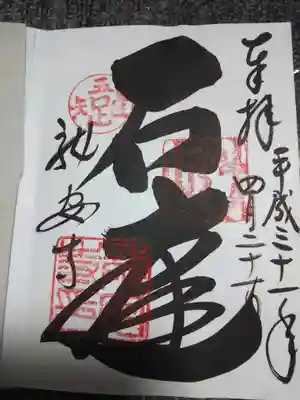 奉拝
平成三十一年
四月三十日
石庭
龍安寺